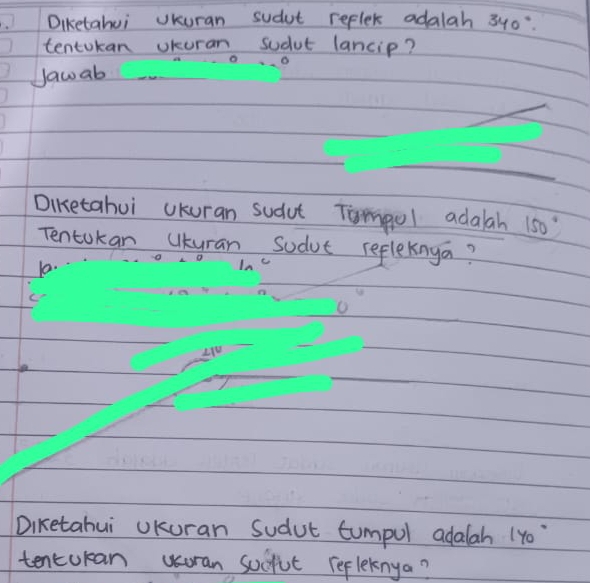 Diketahui ukuran sudut reflek adalah 340°.
tentukan ukuran sudut lancip?
Jawab
Diketahui ukuran sudut Tumpul adalah 150°
Tentukan Ukuran Sudut refleknya?
210
Diketahui ukuran sudut tumpul adalah 140°
tentukan ukuran sudut refleknya?